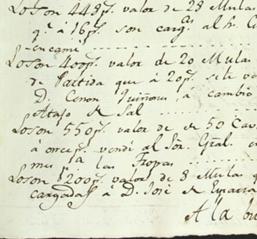 Loson 448 p.s valor de 28 Mulas
q.e à 16 p.s son carg.s al h.
Encamé
Loson 400 p.s valor de 20 Mulas
de Partida que à 20 p.s se le
D. Cenon Quiñones, à cambio
Atajo de Sal
Loson 550 p.s valor de 50 Cav
à once p.s vendi al Sôr. Gral. en
mu p.a las Tropas
Loson 200 p.s valor de 8 Mulas q
cargadas à D. José de Esparza
A la bu